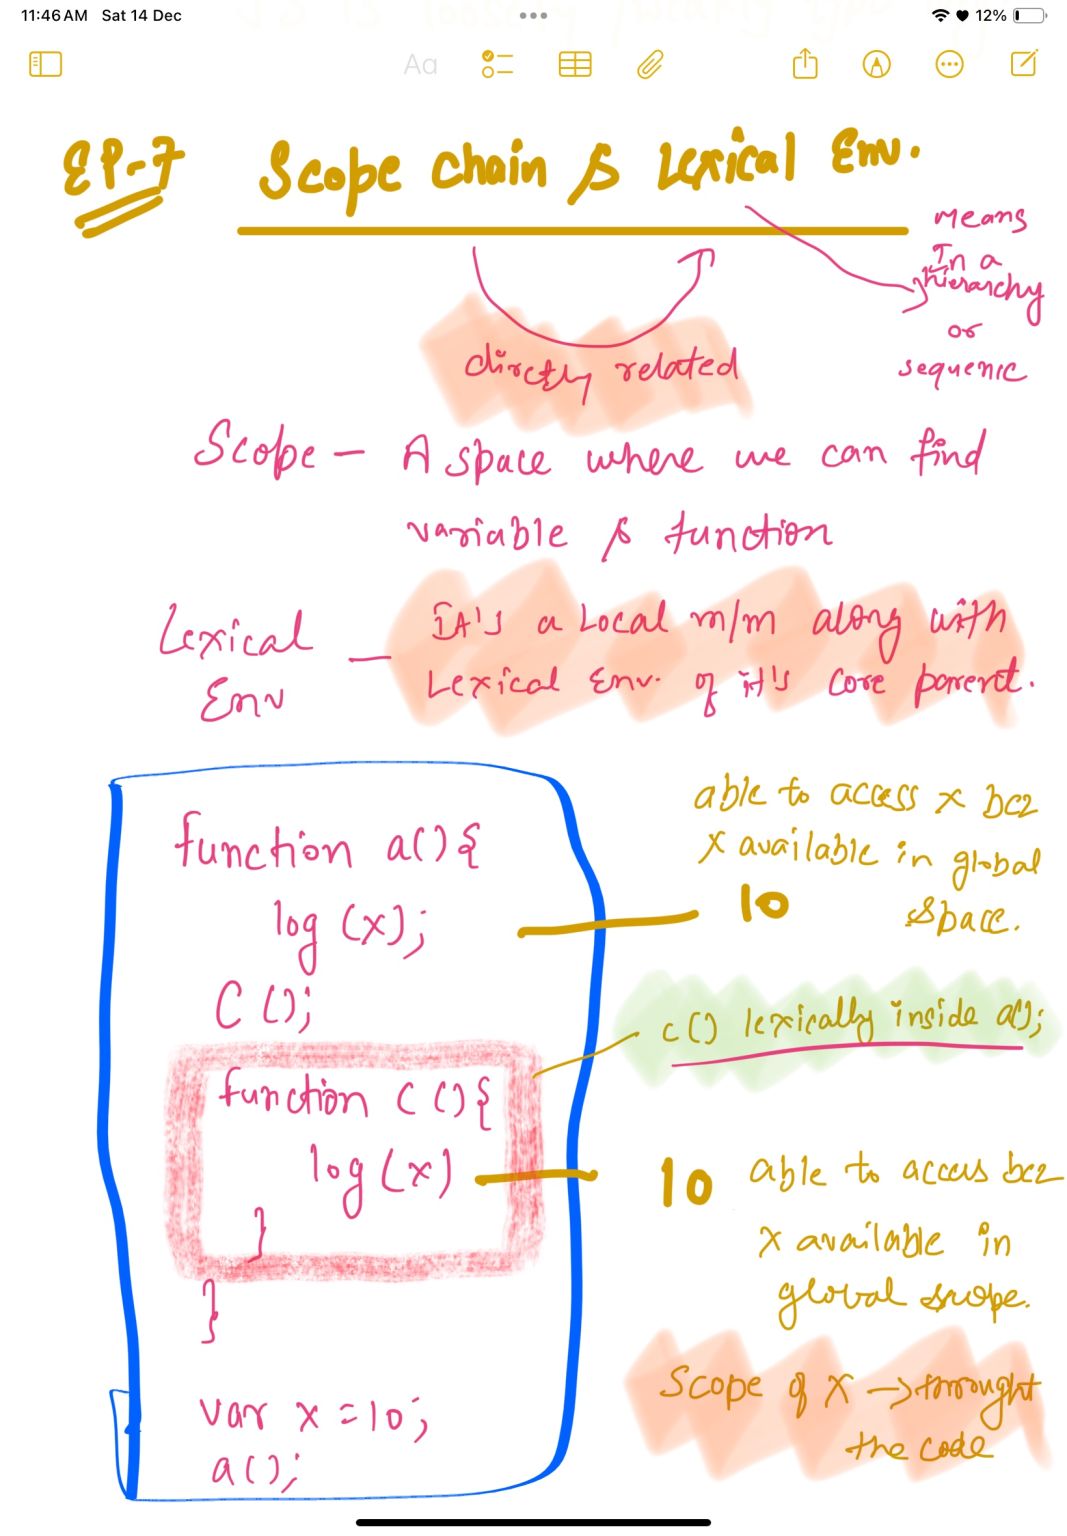 11:46 AM Sat 14 Dec
12%
Aa
EP-7 Scope chain & Lexical Env.
means
In a
hierarchy
or
sequence
directly related
Scope - A space where we can find
variable & function
Lexical Env - It's a Local m/m along with
Lexical Env. of it's core parent.
able to access x bcz
x available in global
space.
function a(){
log (x);
10
C ();
c() lexically inside a();
function C (){
log (x)
10
able to access bcz
x available in
global scope.
}
}
Scope of x → throught
the code
var x = 10;
a();